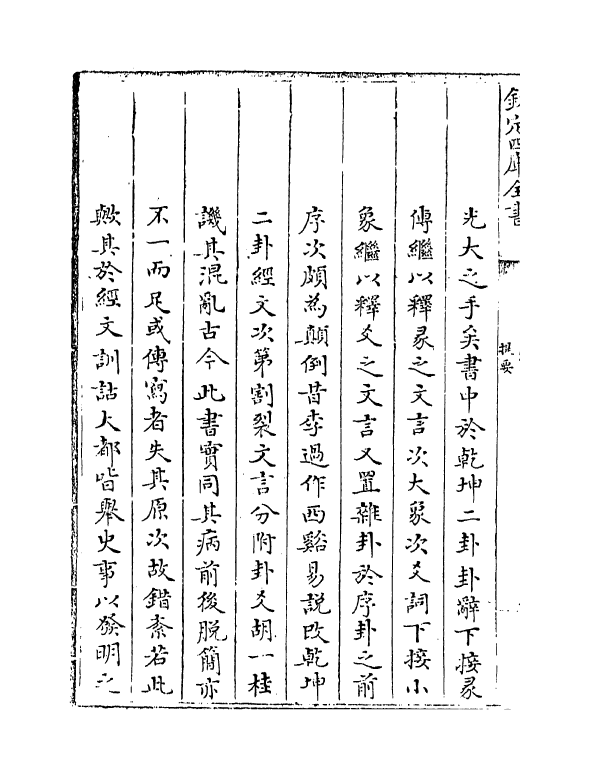 欽定四庫全書
提要
光大之手矣書中於乾坤二卦卦辭下接彖
傳繼以釋彖之文言次大象次爻詞下接小
象繼以釋爻之文言又置雜卦於序卦之前
序次頗為顛倒昔李過作西谿易説改乾坤
二卦經文次第割裂文言分附卦爻胡一桂
譏其混亂古今此書實同其病前後脱簡亦
不一而足或傳寫者失其原次故錯紊若此
歟其於經文訓詁大都皆舉史事以發明之